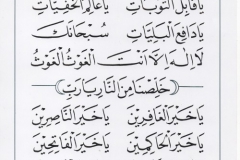 يَا قَابِلَ التَّوْبَاتِ يَا عَالِمَ الْخَفِيَّاتِ
يَا دَافِعَ الْبَلِيَّاتِ سُبْحَانَكَ
لَا اِلٰهَ اِلَّا اَنْتَ الْغَوْثُ الْغَوْثُ
خَلِّصْنَا مِنَ النَّارِ يَا رَبِّ
يَا خَيْرَ الْغَافِرِينَ يَا خَيْرَ النَّاصِرِينَ
يَا خَيْرَ الْحَاكِمِينَ يَا خَيْرَ الْفَاتِحِينَ